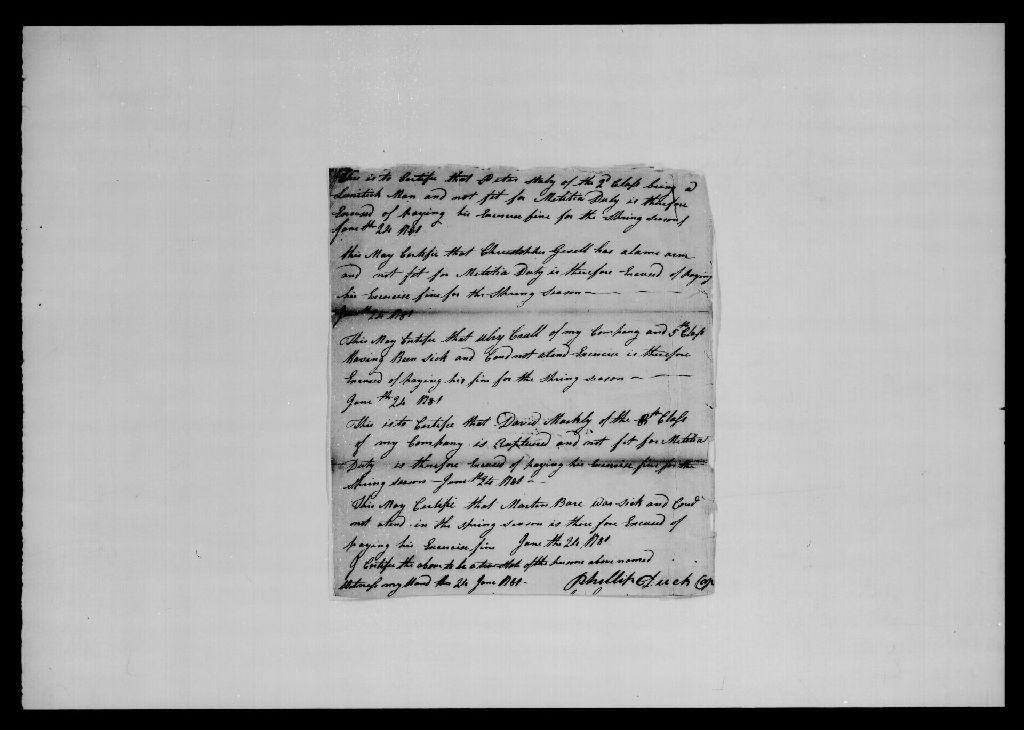 This is to Certifie that Peter of the 2d Class being a
Lunitick Man and not fit for Melitia Duty is therefore
Excused of paying his Exercise fine for the Spring season
June th 24 1781
this May Certifie that Christopher Gesell has a lame arm
and not fit for Melitia Duty is therefore Excused of paying
his Exercise fine for the Spring Season
June th 24 1781
This May Certifie that Ulry Croll of my Company and 5th Class
Having Been sick and Coud not atend Exercise is therefore
Excused of paying his fine for the Spring season
June th 24 1781
This is to Certifie that David Markly of the 8th Class
of my Company is Ruptured and not fit for Melitia
Duty is therefore Excused of paying his Exercise fine for the
Spring season June th 24 1781
This May Certifie that Martin Bare was sick and Coud
not atend in the Spring season is there fore Excused of
paying his Exercise fine June the 24 1781
I Certifie the above to be a true of the persons above named
Witness my Hand this 24 June 1781
Phillip Duck Cap